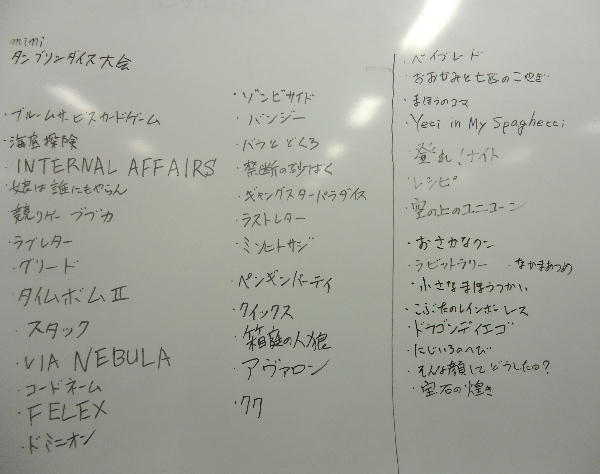 mini
タンブリンダイス大会
・ブルームサービスカードゲーム
・海底探険
・INTERNAL AFFAIRS
・娘は誰にもやらん
・競りゲー ブブカ
・ラブレター
・グリード
・タイムボムⅡ
・スタック
・VIA NEBULA
・コードネーム
・FELEX
・ドミニオン
・ゾンビサイド
・バンジー
・バラとどくろ
・禁断の砂ばく
・ギャングスターパラダイス
・ラストレター
・ミンヒトサジ
・ペンギンパーティ
・クイックス
・箱庭の人狼
・アヴァロン
・クク
・ベイブレード
・おおかみと七匹のこやぎ
・まほうのコマ
・Yeti in My Spaghetti
・登れ!ナイト
・レシピ
・空の上のユニコーン
・おさかなクン
・ラビットラリー ・なかまあつめ
・小さなまほうつかい
・こぶたのレインボーレス
・ドラゴンディエゴ
・にじいろのへび
・そんな顔してどうしたの?
・宝石の煌き